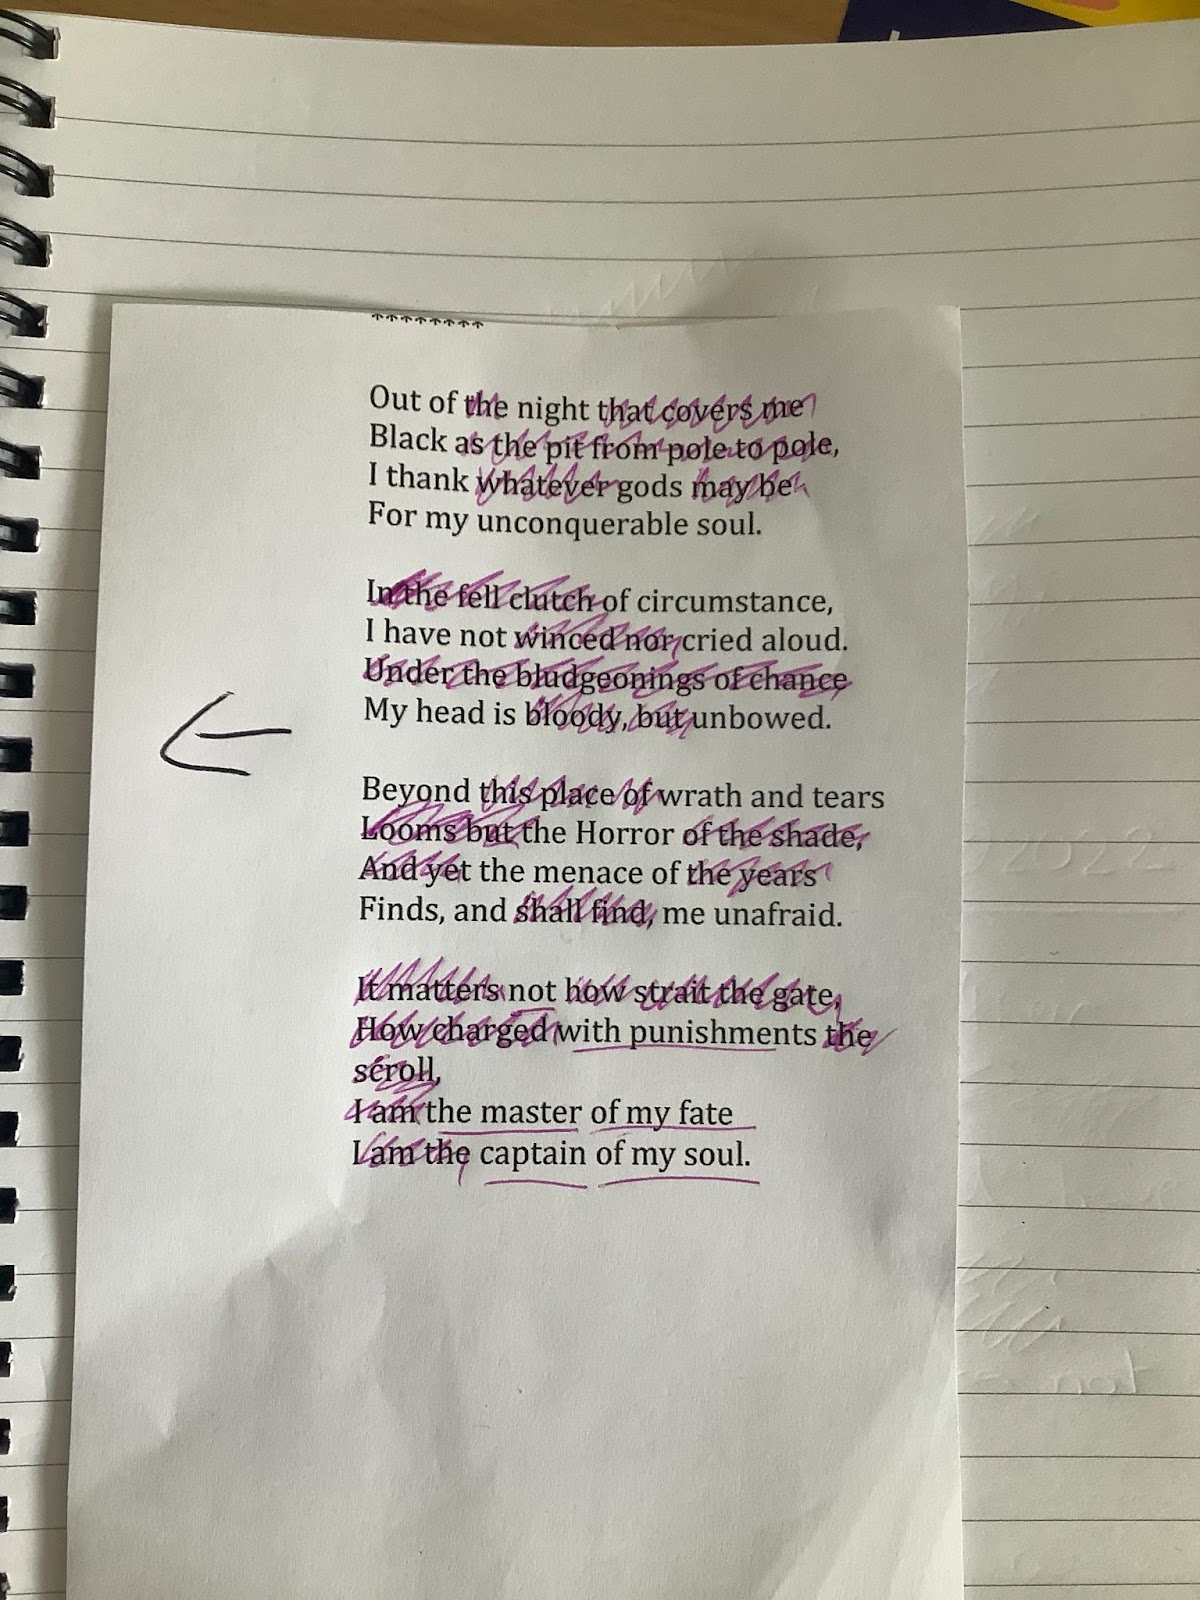 Out of the night that covers me
Black as the pit from pole to pole,
I thank whatever gods may be
For my unconquerable soul.
In the fell clutch of circumstance,
I have not winced nor cried aloud.
Under the bludgeonings of chance
My head is bloody, but unbowed.
Beyond this place of wrath and tears
Looms but the Horror of the shade,
And yet the menace of the years
Finds, and shall find, me unafraid.
It matters not how strait the gate,
How charged with punishments the
scroll,
I am the master of my fate
I am the captain of my soul.
2022
not